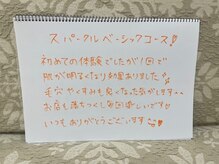 スパークルベーシックコース!!
初めての体験でしたが1回で
肌が明るくなり効果ありました
毛穴やくすみも良くなった気がします
お店も落ちつく
いつもありがとうございます